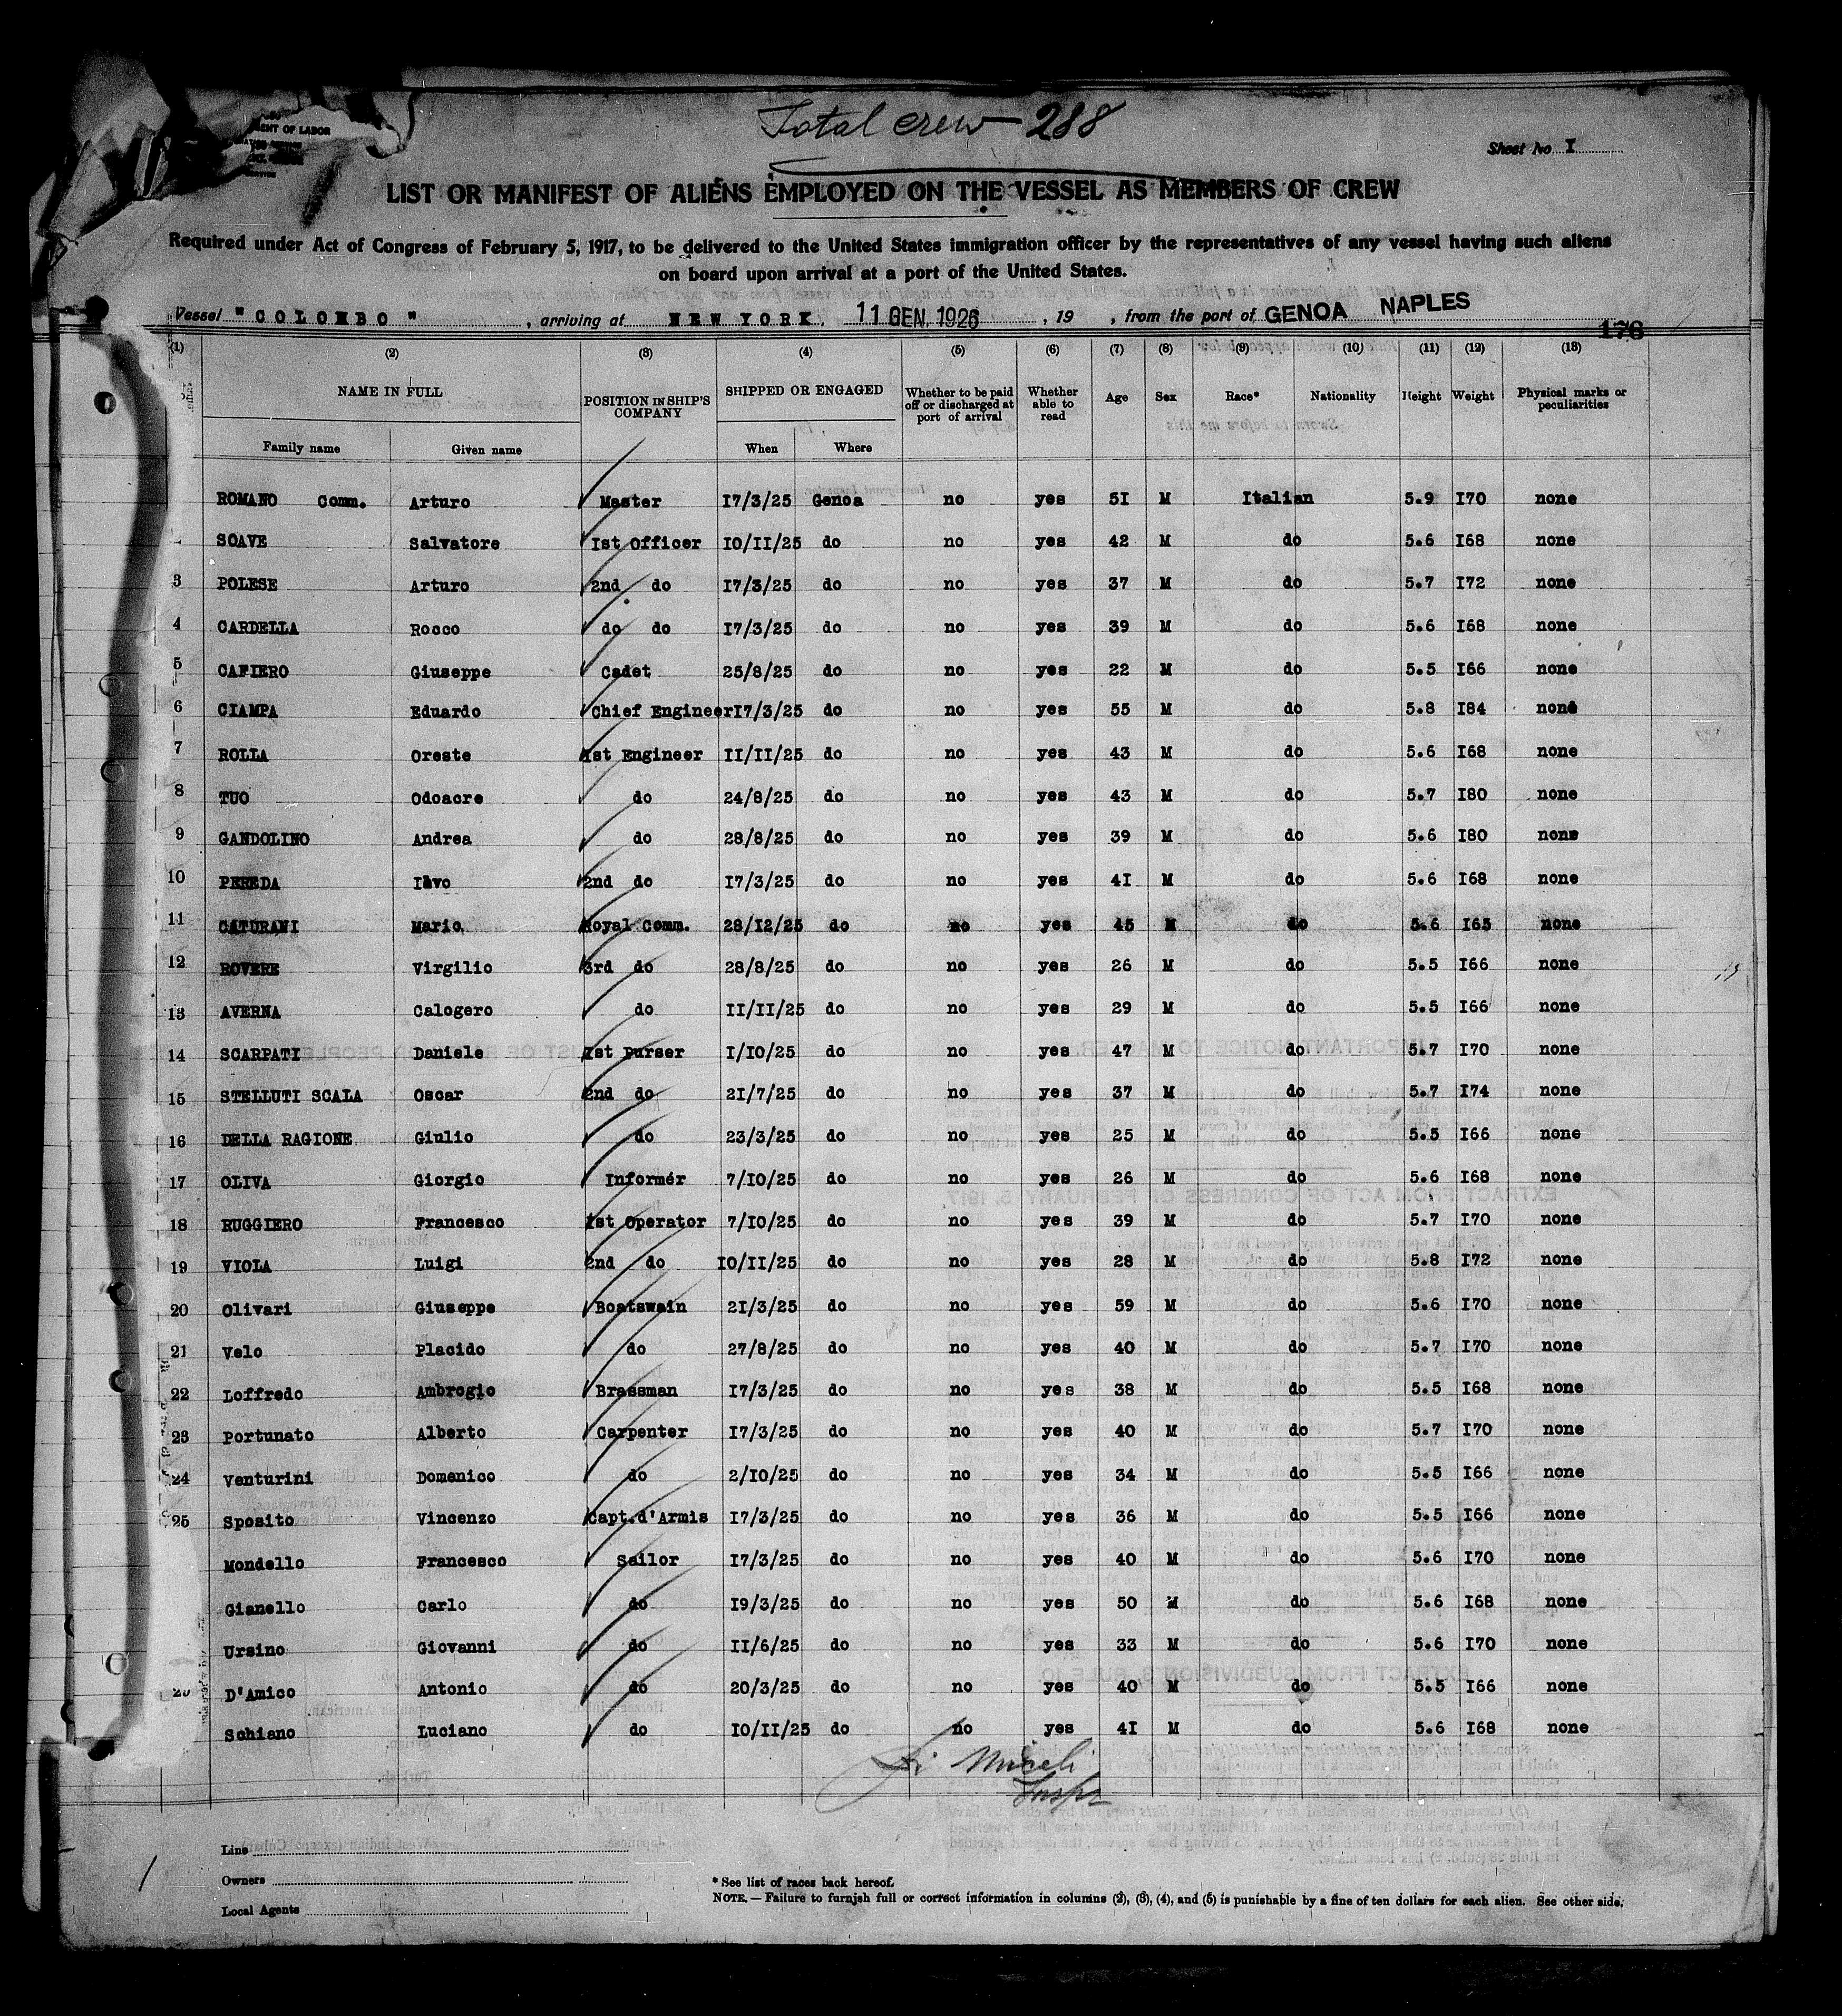 Total crew 288
MENT OF LABOR
Sheet No I
LIST OR MANIFEST OF ALIENS EMPLOYED ON THE VESSEL AS MEMBERS OF CREW
Required under Act of Congress of February 5, 1917, to be delivered to the United States immigration officer by the representatives of any vessel having such aliens
on board upon arrival at a port of the United States.
Vessel "COLOMBO", arriving at NEW YORK, 11 GEN. 1926, 19 , from the port of GENOA NAPLES
176
(1) (2) (3) (4) (5) (6) (7) (8) (9) (10) (11) (12) (13)
NAME IN FULL POSITION IN SHIP'S COMPANY SHIPPED OR ENGAGED Whether to be paid off or discharged at port of arrival Whether able to read Age Sex Race* Nationality Height Weight Physical marks or peculiarities
Family name Given name When Where
ROMANO Comm. Arturo Master I7/3/25 Genoa no yes 5I M Italian 5.9 I70 none
SOAVE Salvatore Ist Officer I0/II/25 do no yes 42 M do 5.6 I68 none
3 POLESE Arturo 2nd do I7/3/25 do no yes 37 M do 5.7 I72 none
4 CARDELLA Rocco do do I7/3/25 do no yes 39 M do 5.6 I68 none
5 CAFIERO Giuseppe Cadet 25/8/25 do no yes 22 M do 5.5 I66 none
6 CIAMPA Eduardo Chief Engineer I7/3/25 do no yes 55 M do 5.8 I84 none
7 ROLLA Oreste Ist Engineer II/II/25 do no yes 43 M do 5.6 I68 none
8 TUO Odoacre do 24/8/25 do no yes 43 M do 5.7 I80 none
9 GANDOLINO Andrea do 28/8/25 do no yes 39 M do 5.6 I80 none
10 PEREDA Ivo 2nd do I7/3/25 do no yes 4I M do 5.6 I68 none
11 CATURANI Mario Royal Comm. 28/I2/25 do no yes 45 M do 5.6 I65 none
12 ROVERE Virgilio 3rd do 28/8/25 do no yes 26 M do 5.5 I66 none
13 AVERNA Calogero do II/II/25 do no yes 29 M do 5.5 I66 none
14 SCARPATI Daniele Ist Purser I/I0/25 do no yes 47 M do 5.7 I70 none
15 STELLUTI SCALA Oscar 2nd do 2I/7/25 do no yes 37 M do 5.7 I74 none
16 DELLA RAGIONE Giulio do 23/3/25 do no yes 25 M do 5.5 I66 none
17 OLIVA Giorgio Informér 7/I0/25 do no yes 26 M do 5.6 I68 none
18 RUGGIERO Francesco Ist Operator 7/I0/25 do no yes 39 M do 5.7 I70 none
19 VIOLA Luigi 2nd do I0/II/25 do no yes 28 M do 5.8 I72 none
20 Olivari Giuseppe Boatswain 2I/3/25 do no yes 59 M do 5.6 I70 none
21 Velo Placido do 27/8/25 do no yes 40 M do 5.7 I70 none
22 Loffredo Ambrogio Brassman I7/3/25 do no yes 38 M do 5.5 I68 none
23 Portunato Alberto Carpenter I7/3/25 do no yes 40 M do 5.7 I70 none
24 Venturini Domenico do 2/I0/25 do no yes 34 M do 5.5 I66 none
25 Sposito Vincenzo Capt.d'Armis I7/3/25 do no yes 36 M do 5.5 I66 none
Mondello Francesco Sailor I7/3/25 do no yes 40 M do 5.6 I70 none
Gianello Carlo do I9/3/25 do no yes 50 M do 5.6 I68 none
Ursino Giovanni do II/6/25 do no yes 33 M do 5.6 I70 none
D'Amico Antonio do 20/3/25 do no yes 40 M do 5.5 I66 none
Schiano Luciano do I0/II/25 do no yes 4I M do 5.6 I68 none
Miceli
Line
Owners
Local Agents
* See list of races back hereof.
NOTE. — Failure to furnish full or correct information in columns (2), (3), (4), and (5) is punishable by a fine of ten dollars for each alien. See other side.